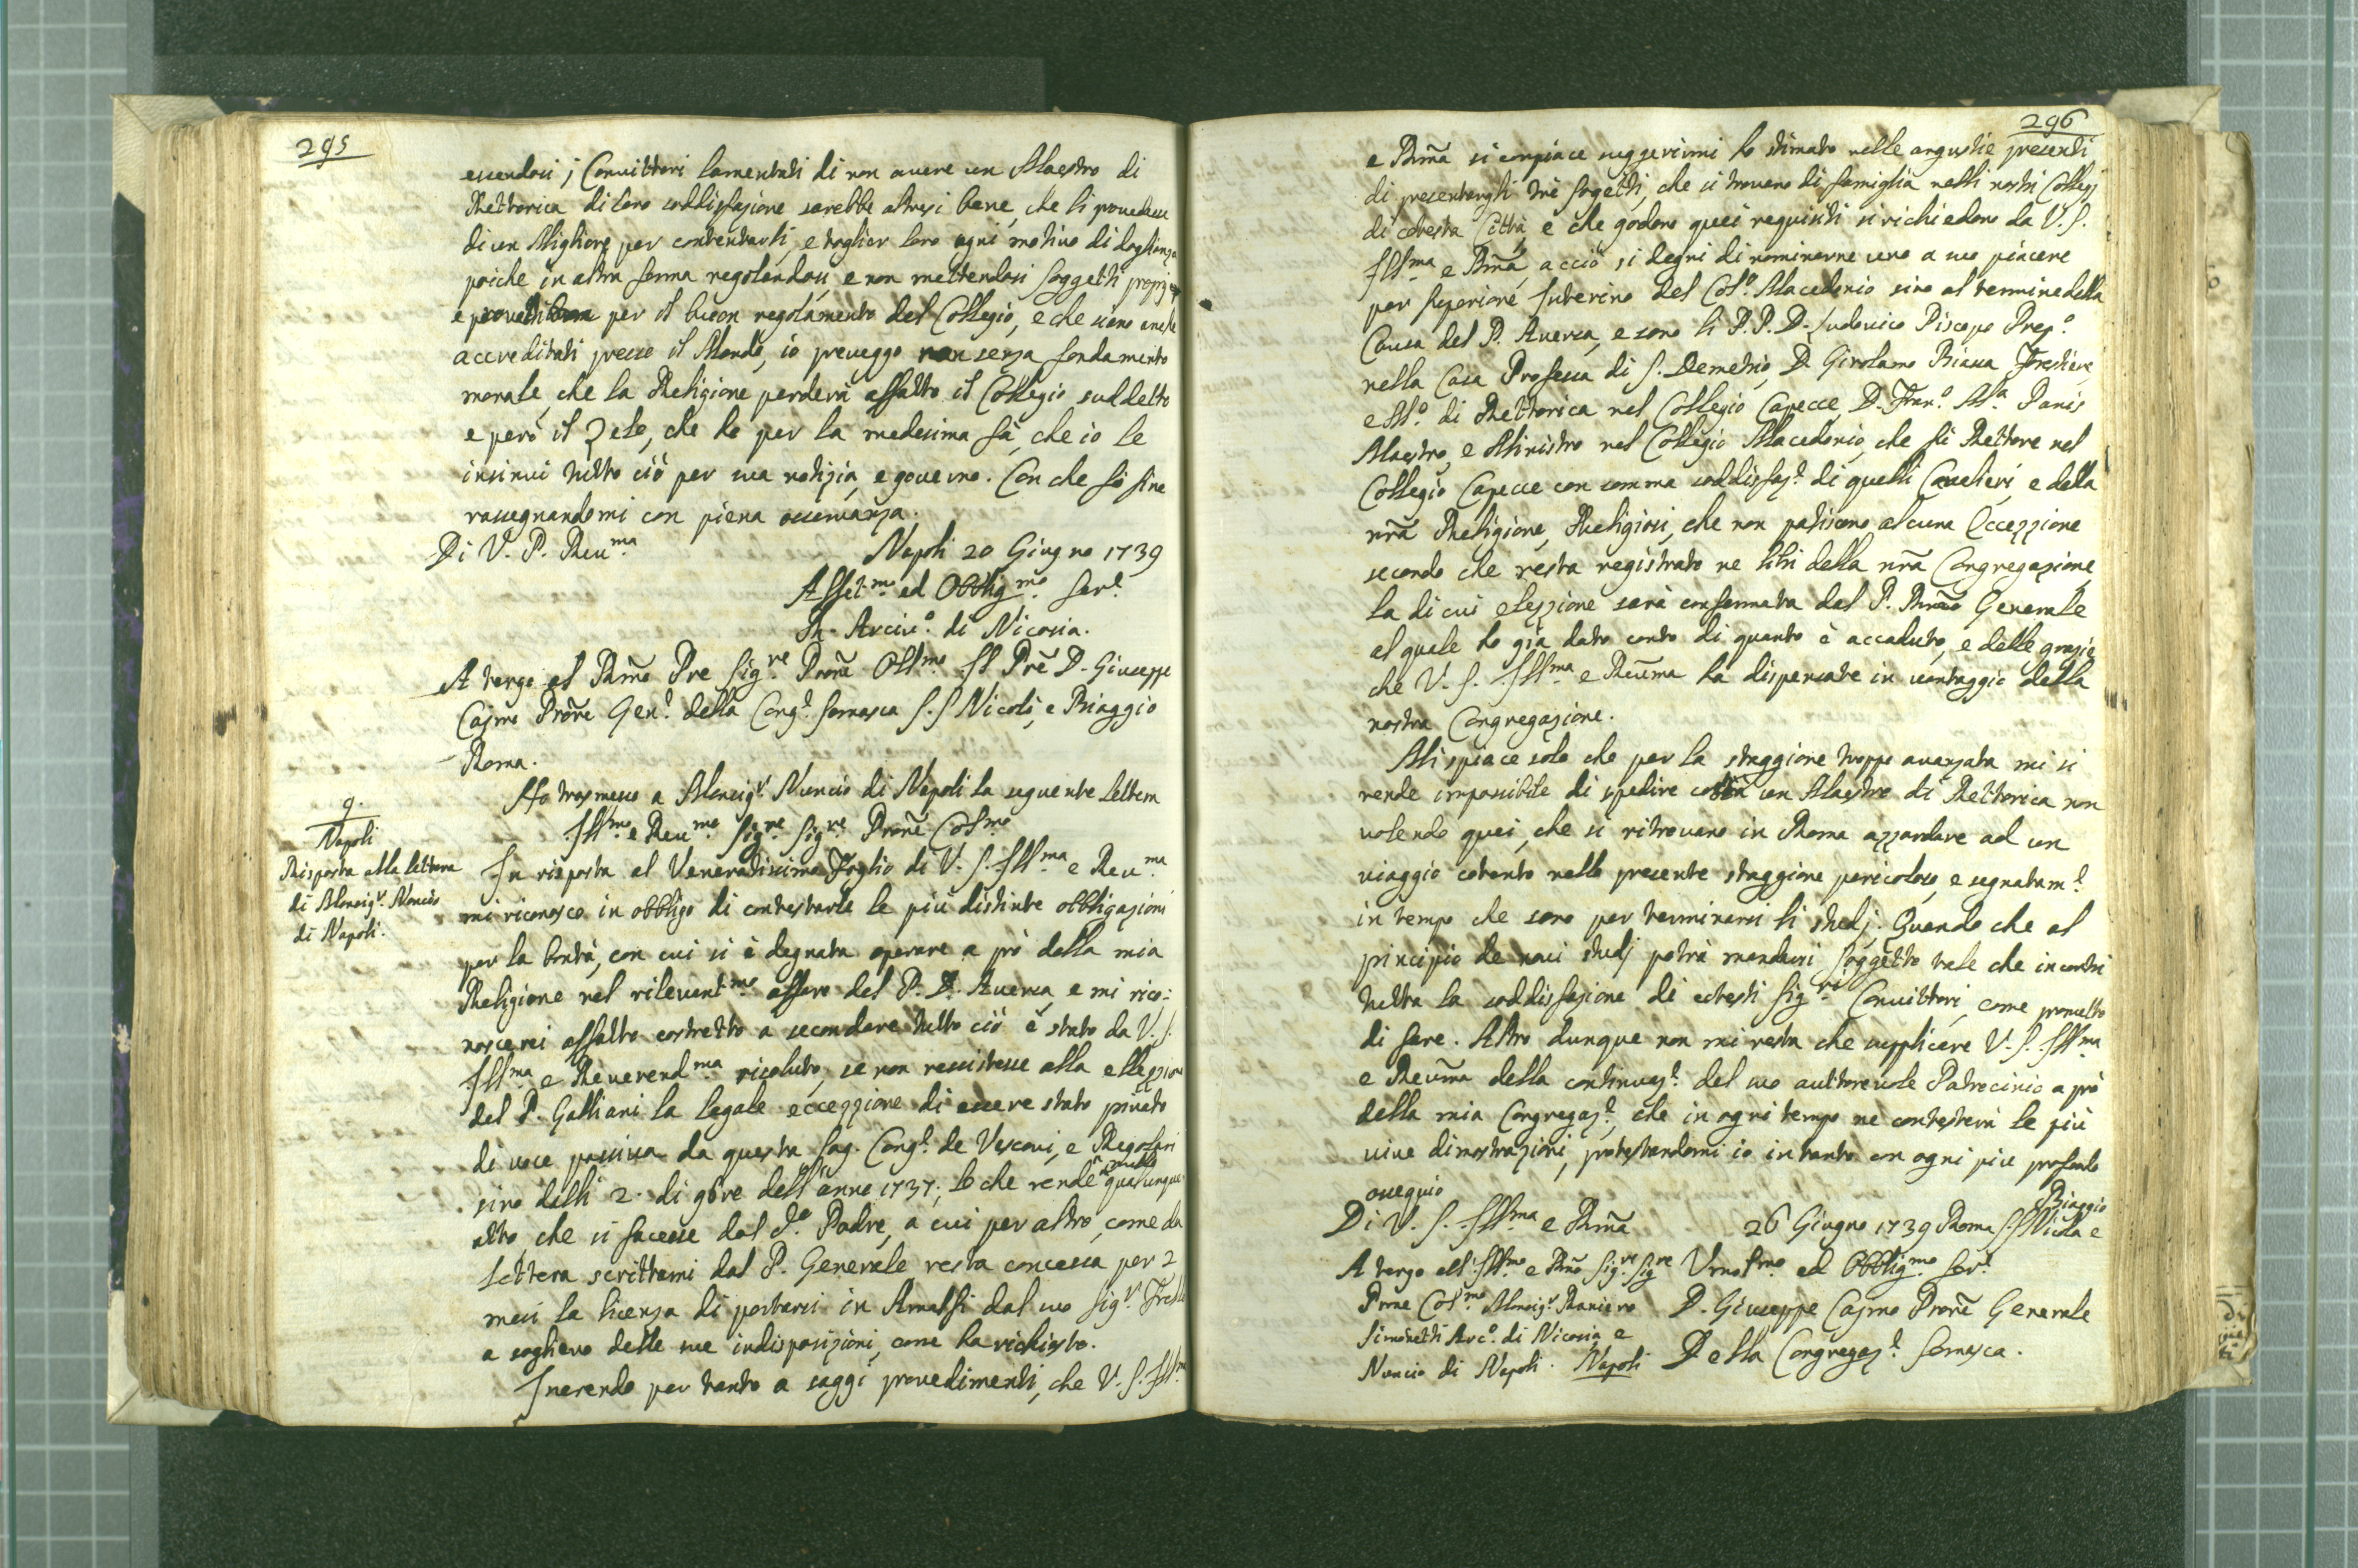 295
essendosi i Convittori lamentati di non avere un Maestro di
Rettorica di loro soddisfazione sarebbe altresi bene, che li provedesse
di un Migliore per contentarli, e toglier loro ogni motivo di doglianza
poiche in altra forma regolandosi, e non mettendosi soggetti proprj
e per il buon regolamento del Collegio, e che siano anche
accreditati presso il Mondo, io preveggo non senza fondamento
morale, che la Religione perderà affatto il Collegio suddetto
e però il Zelo, che ho per la medesima fà, che io le
insinui tutto ciò per sua notizia, e governo. Con che fò fine
rassegnandomi con piena osservanza.
Di V. P. Reu.ma Napoli 20 Giugno 1739
Affet.mo ed Obblig.mo Ser.e
Arciv.o di Nicosia.
A tergo al Rmo Pre Sig.re Prone Oss.mo Il Pre D. Giuseppe
Cajmo Prore Gen.e della Cong.e Somasca S.S Nicolò, e Biaggio
Roma.
Ho trasmesso a Monsig.r Nuncio di Napoli la seguente lettera
9.
Napoli
Risposta alla lettera
di Monsig.r Nuncio
di Napoli.
Ill.mo e Reu.mo Sig.re Sig.re Prone Col.mo
In risposta al Veneratissimo Foglio di V. S. Ill.ma e Reu.ma
mi riconosco in obbligo di contestarle le più distinte obbligazioni
per la bontà, con cui si è degnata operare a prò della mia
Religione nel rilevant.mo affare del P. D. Aversa, e mi rico:
noscerei affatto costretto a secondare tutto ciò è stato da V. S.
Ill.ma e Reverend.ma risoluto, se non resistesse alla elezzione
del P. Galliani la legale eccezzione di essere stato privato
di voce passiva da questa Sag. Cong.e de Vescovi, e Regolari
sino dalli 2. di 9bre dell'anno 1737; lo che rende nullo qualunque
atto che si facesse dal d.o Padre, a cui per altro, come da
lettera scrittami dal P. Generale resta concessa per 2
mesi la licenza di portarsi in Amalfi dal suo Sig.r Fratello
a soglievo delle sue indisposizioni, come ha richiesto.
Inerendo per tanto a saggi provedimenti, che V. S. Ill.ma
296
e Rma si compiace suggerirmi ho stimato nelle angustie presenti
di presentargli trè sogetti, che si trovano di famiglia nelli nostri Collegj
di cotesta Città, e che godono quei requisiti si richiedono da V. S.
Ill.ma e Rma, acciò si degni di nominarne uno a suo piacere
per Superiore Interino del Col.o Macedonio sino al termine della
Causa del P. Aversa, e sono li P.P. D. Ludovico Piscopo Prep.o
nella Casa Professa di S. Demetrio, D. Girolamo Riava Forestiere,
e M.o di Rettorica nel Collegio Capecce, D. Fran.o M.a Panis
Maestro, e Ministro nel Collegio Macedonio, che fù Rettore nel
Collegio Capecce con somma soddisfaz.e di quelli Cavalieri, e della
nra Religione, Religiosi, che non patiscono alcuna Eccezzione
secondo che resta registrato ne libri della nra Congregazione,
la di cui elezzione sarà confermata dal P. Rmo Generale
al quale ho già dato conto di quanto è accaduto, e delle grazie
che V. S. Ill.ma e Reuma ha dispensate in vantaggio della
nostra Congregazione.
Mi spiace solo che per la staggione troppo avanzata mi si
rende impossibile di spedire costà un Maestro di Rettorica non
volendo quei, che si ritrovano in Roma azzardare ad un
viaggio cotanto nella presente staggione pericoloso, e segnatam.e
in tempo che sono per terminarsi li studj. Quando che al
principio de novi studj potrà mandarsi soggetto tale che incontri
tutta la soddisfazione di cotesti Sig.ri Convittori, come prometto
di fare. Altro dunque non mi resta che supplicare V. S. Ill.ma
e Reuma della continuaz.e del suo auttorevole Patrocinio a prò
della mia Congregaz.e, che in ogni tempo ne contesterà le più
vive dimostrazioni, protestandomi io in tanto con ogni più profondo
ossequio
Di V. S. Ill.ma e Rma 26 Giugno 1739 Roma S.S Nicola e Biaggio
A tergo all'Ill.mo e Rmo Sig.re Sig.re Umol.mo ed Obblig.mo Ser.e
Prone Col.mo Monsig.r Raniero D. Giuseppe Cajmo Prore Generale
Simonetti Arc.o di Nicosia e
Nuncio di Napoli. Napoli Della Congregaz.e Somasca.